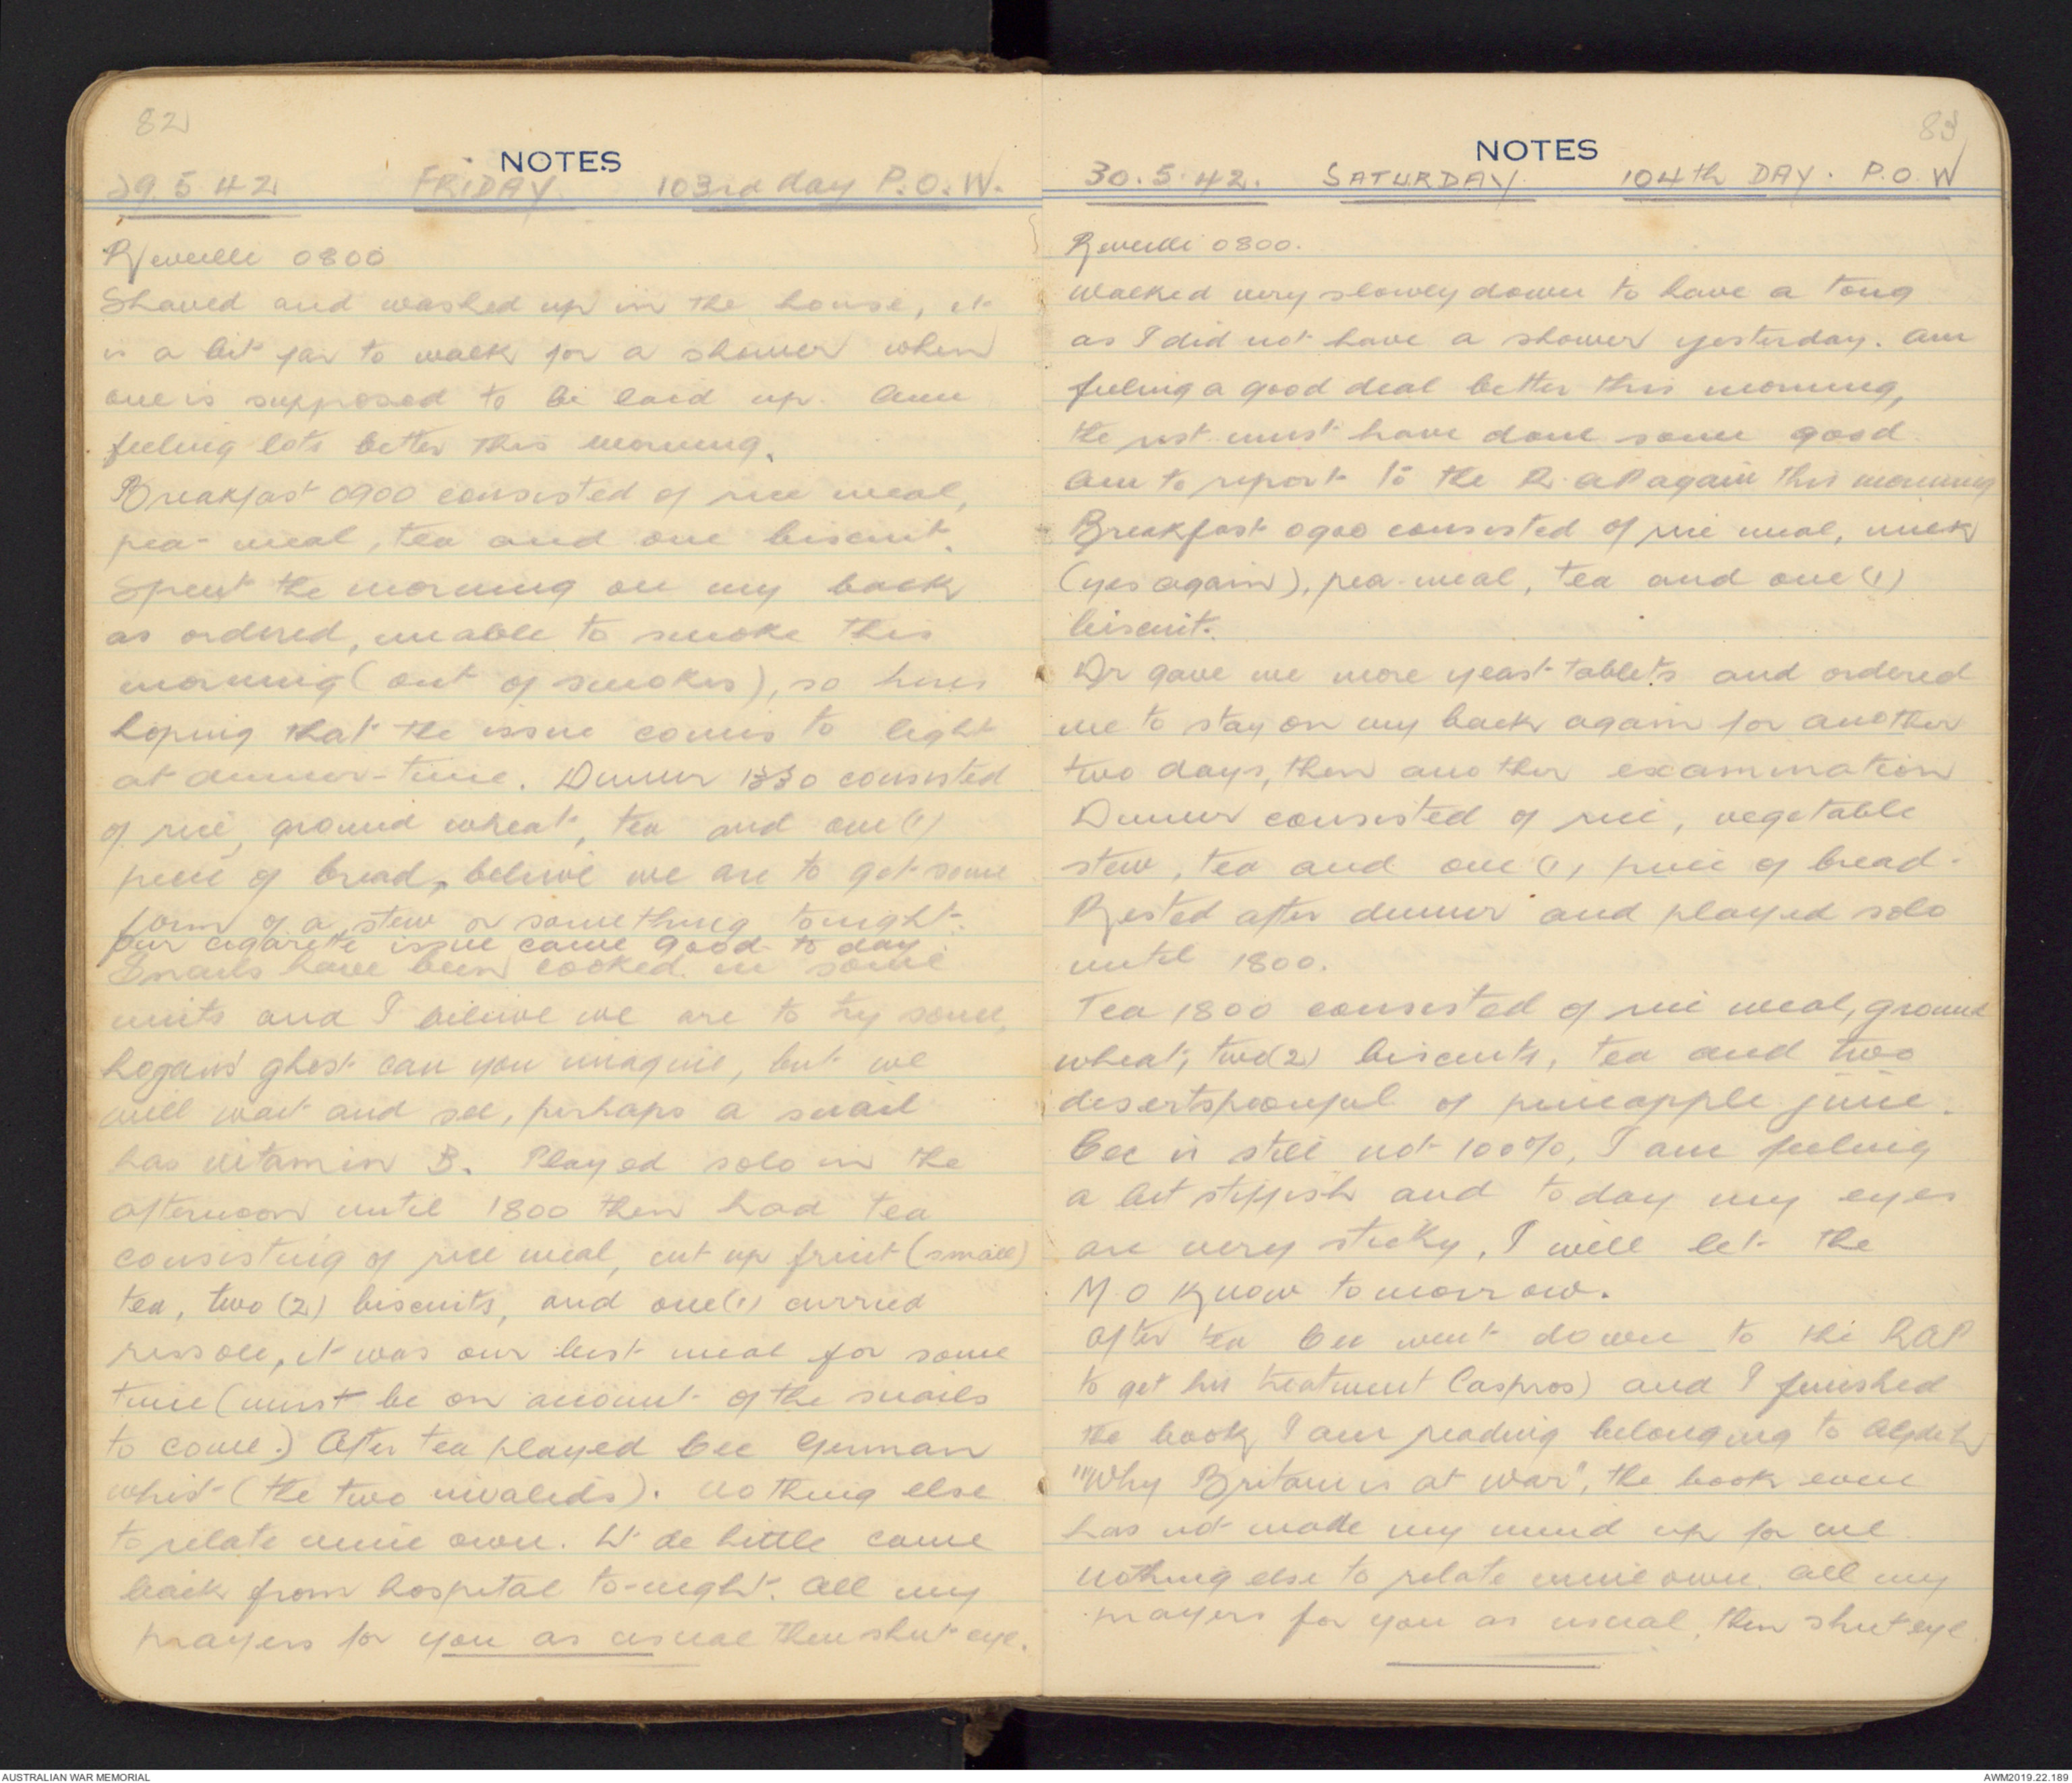 82
NOTES
29.5.42 FRIDAY. 103rd day P.O.W.
Reveille 0800
Shaved and washed up in the house, it
is a bit far to walk for a shower when
one is supposed to be laid up. Am
feeling lots better this morning.
Breakfast 0900 consisted of rice meal,
pea-meal, tea and one biscuit.
Spent the morning on my back
as ordered, unable to smoke this
morning (out of smokes), so heres
hoping that the issue comes to light
at dinner-time. Dinner 1330 consisted
of rice, ground wheat, tea and one (1)
piece of bread, believe we are to get some
form of a stew or something tonight.
Our cigarette issue came good to day.
Snails have been cooked in some
units and I believe we are to try some,
hogans ghost can you imagine, but we
will wait and see, perhaps a snail
has vitamin B. Played solo in the
afternoon until 1800 then had tea
consisting of rice meal, cut up fruit (small)
tea, two (2) biscuits, and one (1) curried
rissole, it was our best meal for some
time (must be on account of the snails
to come.) After tea played Cec German
whist (the two invalids). Nothing else
to relate mine own. Lt de Little came
back from hospital to-night. All my
prayers for you as usual then shut eye.
83
NOTES
30.5.42. SATURDAY. 104th DAY. P.O.W
Reveille 0800.
Walked very slowly down to have a tong
as I did not have a shower yesterday. Am
feeling a good deal better this morning,
the rest must have done some good.
Am to report to the R.A.P again this morning
Breakfast 0900 consisted of rice meal, milk
(yes again), pea-meal, tea and one (1)
biscuit.
Dr gave me more yeast tablets and ordered
me to stay on my back again for another
two days, then another examination
Dinner consisted of rice, vegetable
stew, tea and one (1) piece of bread.
Rested after dinner and played solo
until 1800.
Tea 1800 consisted of rice meal, ground
wheat, two (2) biscuits, tea and two
desertspoonful of pineapple juice.
Cec is still not 100%, I am feeling
a bit stiffish and today my eyes
are very sticky, I will let the
M.O know tomorrow.
After tea Cec went down to the RAP
to get his treatment (aspros) and I finished
the book I am reading belonging to
"Why Britain is at War", the book even
has not made my mind up for me.
Nothing else to relate mine own. All my
prayers for you as usual, then shut eye.
AUSTRALIAN WAR MEMORIAL
AWM2019.22.189